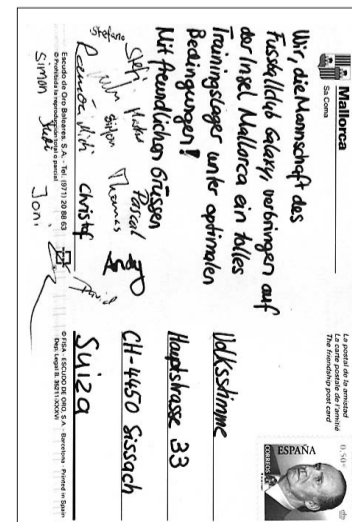 Mallorca
Sa Coma
Wir, die Mannschaft des
Fussballclub Galaxy verbringen auf
der Insel Mallorca ein tolles
Trainingslager unter optimalen
Bedingungen!
Mit freundlichen Grüssen
Stefano
Pascal
Simon
Thomas
Christof
David
Simon
Joni
Escudo de Oro Baleares, S.A. - Tel. (971) 20 88 63
© Prohibida la reproducción total o parcial
La postal de la amistad
La carte postale de l'amitié
The friendship post card
0,50€
ESPAÑA
CORREOS
Volksstimme
Hauptstrasse 33
CH-4450 Sissach
Suiza
© FISA - ESCUDO DE ORO, S.A. - Barcelona - Printed in Spain